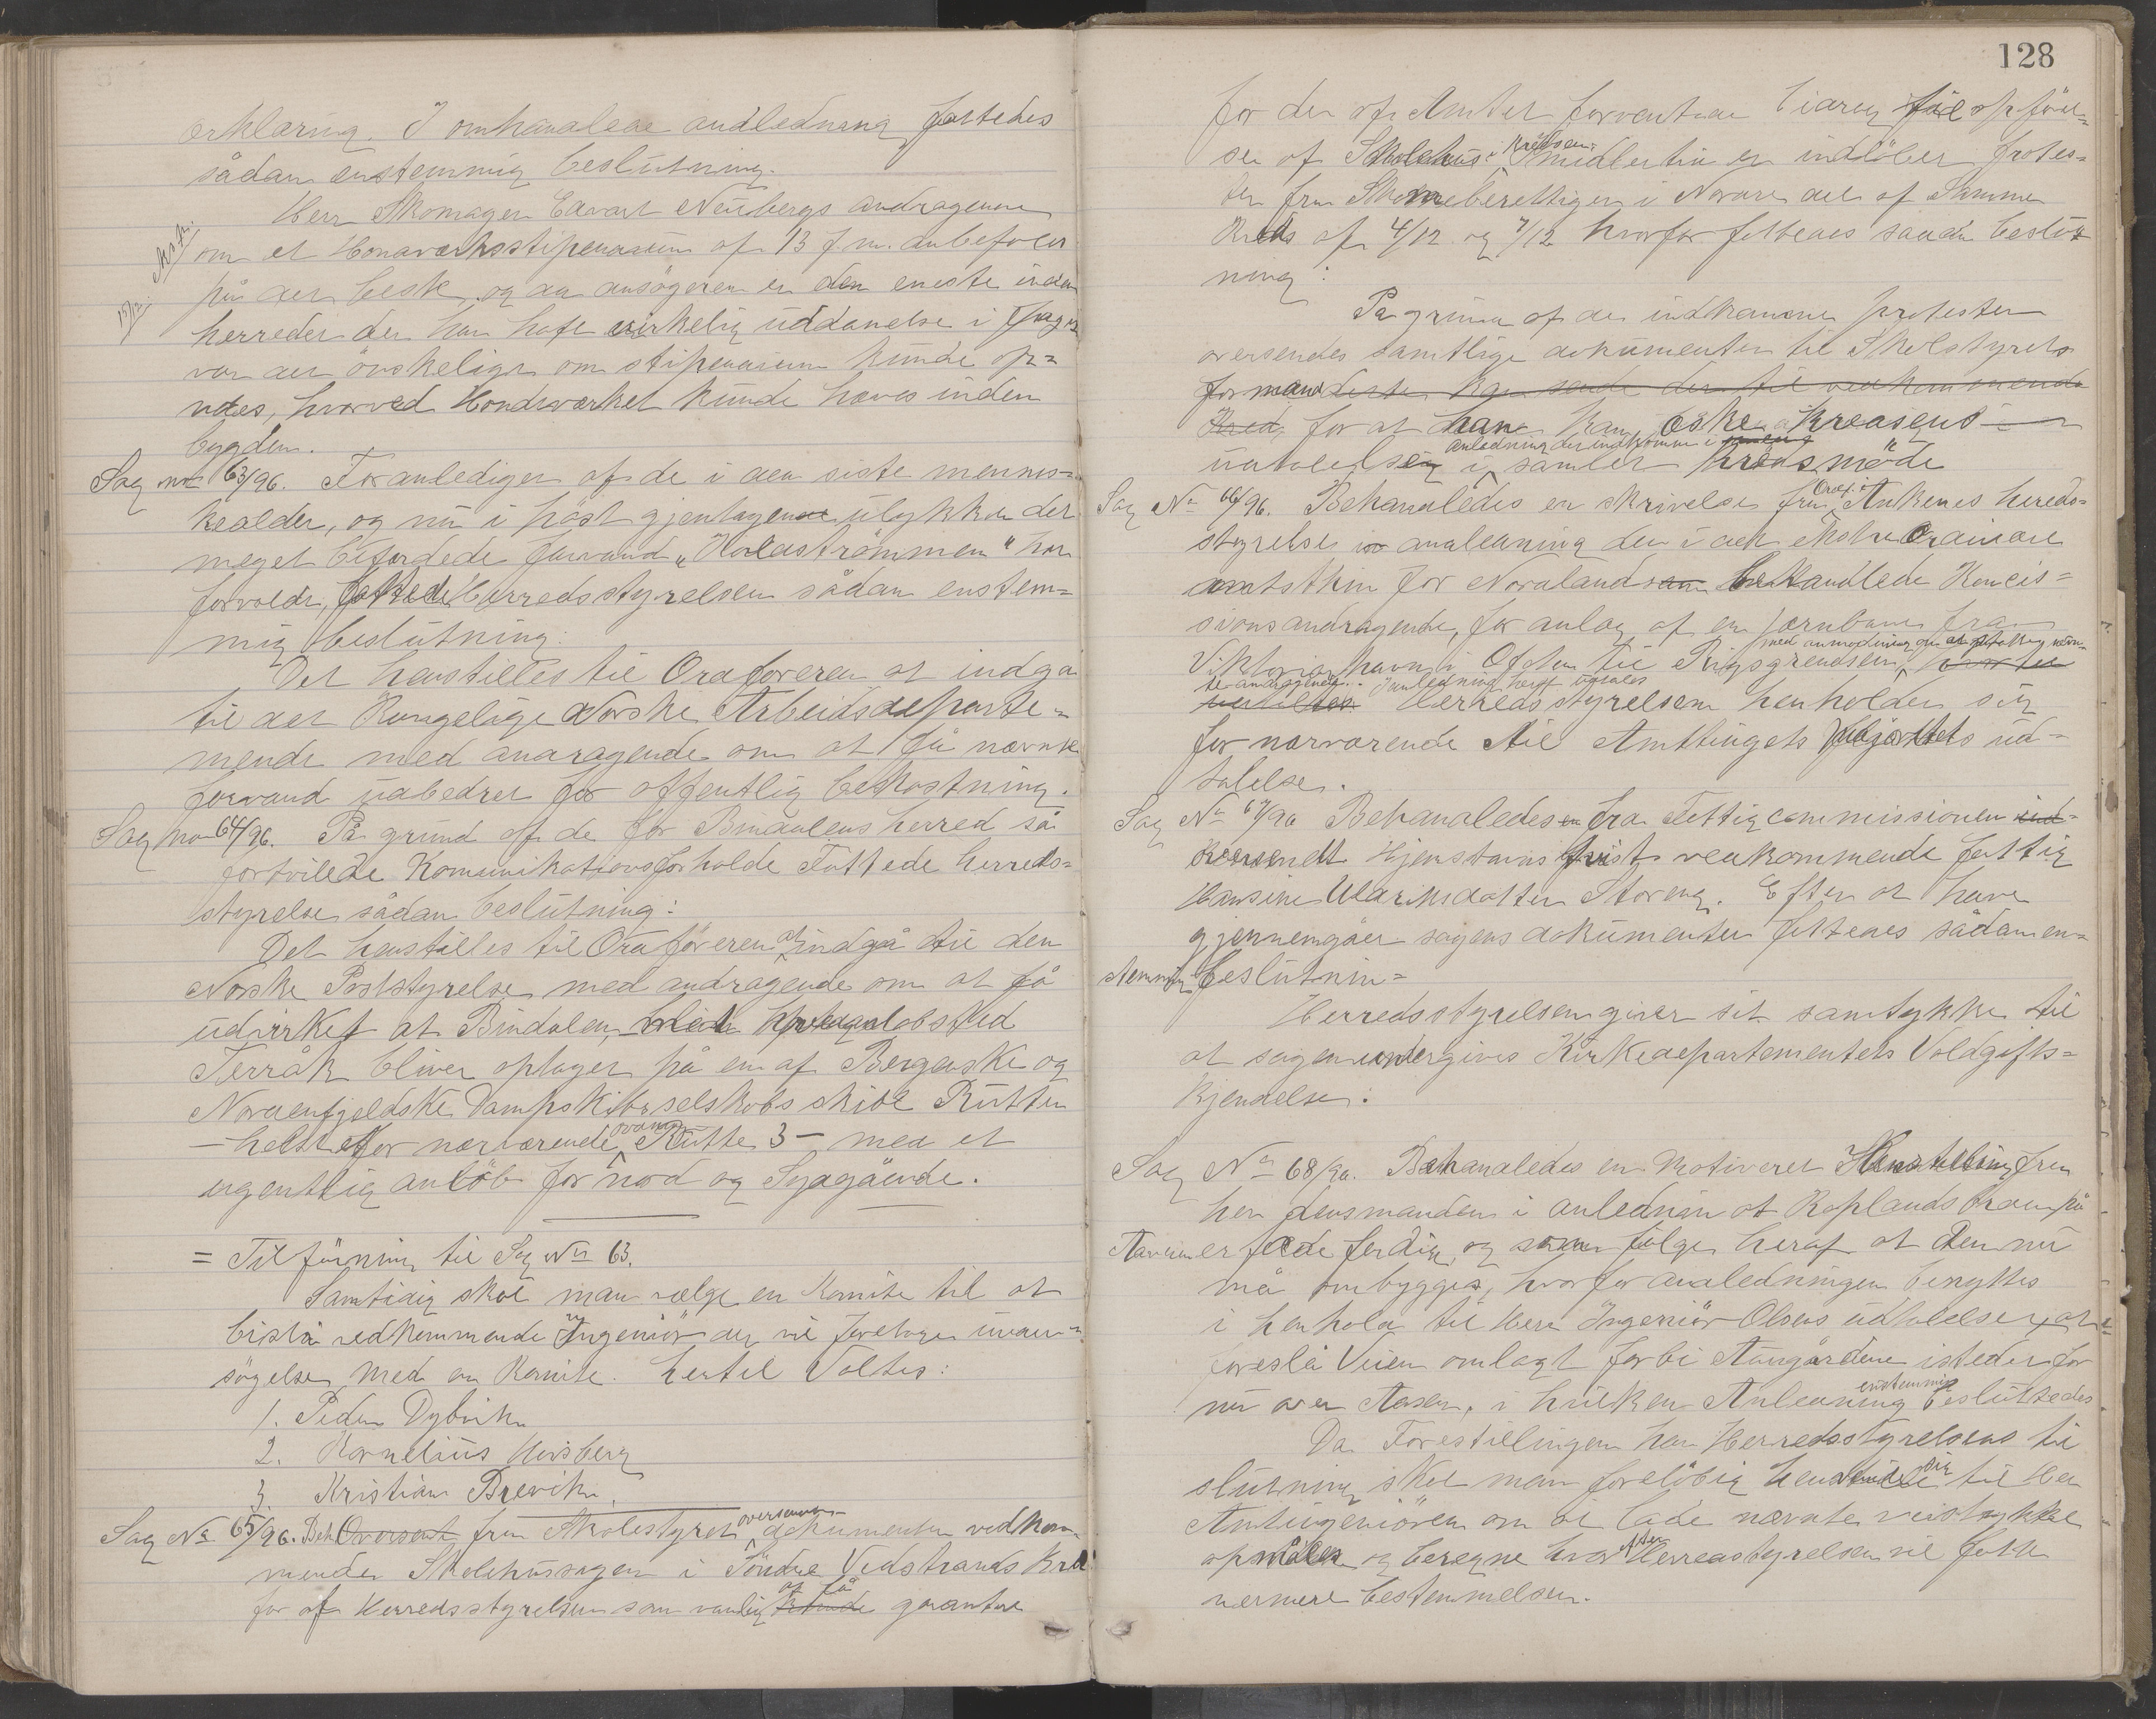 erklæring. I omhandlede andledning fattedes
sådan enstemmig beslutning.
Herr Skomager Edvart Neubergs andragende
om et Handværksstipendium af 13 f. m. anbefales
på det beste, og da ansögeren er den eneste inden
herredet der har haft virkelig uddanelse i Faget
var det önskeligt om stipendium kunde op=
nåes, hvorved Handværket kunde hæves inden
bygden.
Sag no 63/96. Foranlediget af de i den siste mennes=
kealder, og nu i høst gjentagende ulykker det
meget befardede farvand „Holdströmmen" har
forvoldt, fattede Herredsstyrelsen sådan enstem=
mig beslutning:
Det henstilles til Ordföreren at indgå
til det Kongelige Norske Arbeidsdeparte=
mende med andragende om at få nævnte
farvand udbedret for offentlig bekostning.
Sag no 64/96. På grund af de for Bindalens herred så
fortvilede Komunikationsforholde Fattede herreds=
styrelse sådan beslutning:
Det henstilles til Ordföreren at indgå til den
Norske Poststyrelse med andragende om at få
udvirket at Bindalen, med anlöbssted
Terråk bliver optaget på en af Bergenske og
Nordenfjeldske Dampskibsselskabs skibe Rutten
— helst for nærværende Rutte 3 — med et
ugentlig anlöb for nord og Sydgående.
= Tilföining til Sag No 63.
Samtidig skal man vælge en Komite til at
bistå vedkommende Ingeniör der vil foretage under=
sögelse, med en Komite. hertil Valtes:
1. Peder Dybvik
2. Kornelius
3. Kristian Brevik
Sag No 65/96. Beh Oversent fra Skolestyret oversendte dokumenter vedkom=
mende Skolehussagen i Söndre Vedstrands Kreds
for af Herredsstyrelsen som vanlig at få kunde garantere
128
for det af Amtet forventede bidrag til opför=
sel af Skolehus i Kredsen. Imidlertid er indlöbet protes=
ter fra Stemmeberettigede i Nordre del af Samme
Kreds af 4/12 og 7/12 hvorfor fattedes sådan beslut
ning:
På grund af de indkomne protester
oversendes samtlige dokumenter til Skolstyrets
formand dette kan sende dem til vedkommende
Kred, for at han kan öske Kredsens
anledning der indkomne i
udtalelse i samlet kreds möde
Sag No 66/96. Behandledes en skrivelse fra Ordf. i Ankenes hereds=
styrelse i andledning den i det ekstraordinære
amtsthin for Nordland behandlede Koncis=
sionsandragende, for anlæg af en jernbane fra
med anmodning om at
Viktoriahavn i Ofoten til Rigsgrændsen,
te andragende. I anledning heraf udtales
udtaltes. Herredsstyrelsen henholder sig
for nærværende til Amttingets udtalelse.
Sag No 67/96 Behandledes en fra Fattigcommissionen ind=
oversendt Hjemstavns tvist vedkommende fattig
Hansine Ulariksdatter Storeng. Efter at have
gjennemgået sagens dokumenter fattedes sådan en=
stemmig beslutnin=
Herredsstyrelsen giver sit samtykke til
at sagen undergives Kirkedepartementets Voldgifts=
kjendelse.
Sag No 68/96. Behandledes en Motiveret Henstilling fra
her Lensmanden i anlednin at Roplands broen på
er ferdig, og som fölge heraf at den nu
må ombygges, hvorfor andledningen benyttes
i henhold til Herr Ingeniör Olsens udtalelse, at
foreslå Veien omlagt forbi Aungårdene istedet for
nu over Aasen, i hvilken Anledning enstemmig besluttedes
Da Forestillingen har Herredsstyrelsens til
slutning skal man forelöbig henvende sig til Her
Amtingeniören om at lade nævnte veistykke
opmåles og beregne hvor efter Herredstyrelsen vil fatte
nærmere bestemmelser.